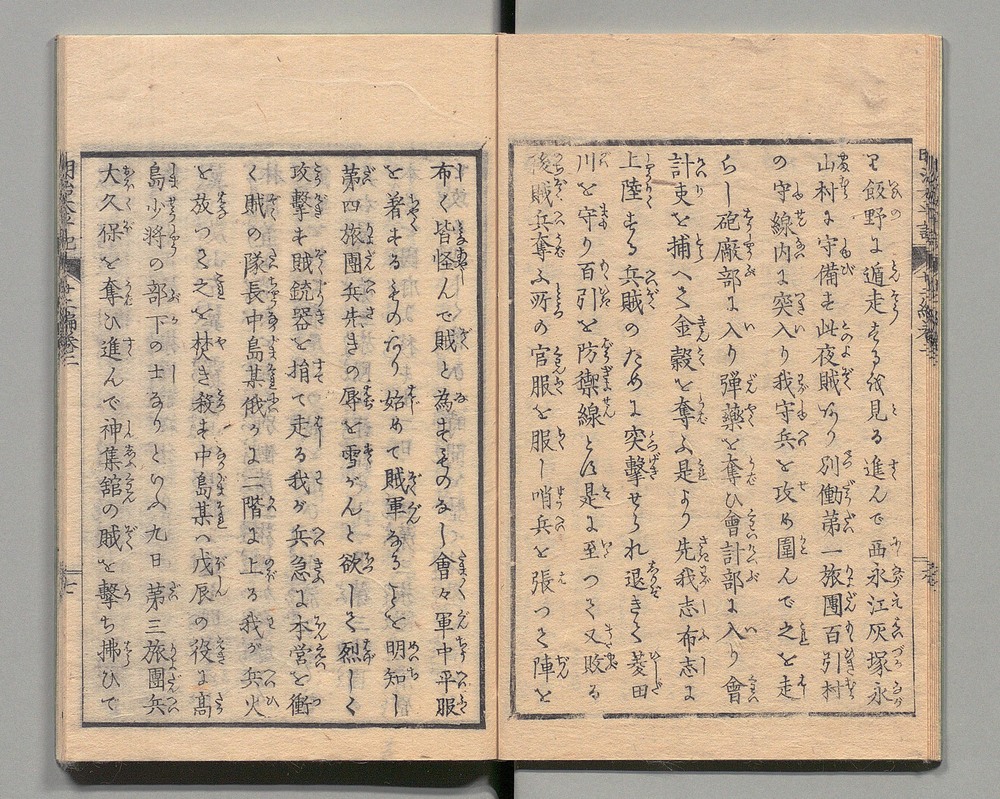 り飯野に遁走する伐見る進んで西永江灰塚永
山村に守備す此夜賊より別働第一旅團百引村
の守線内に突入り我守兵を攻め圍んで之を走
らし砲廠部に入り彈藥を奪ひ會計部に入り會
計吏を捕へて金穀を奪ふ是より先我志布志に
上陸する兵賊のために突撃せられ退きて菱田
川を守り百引を防禦線とは是に至つて又敗る
後賊兵奪ふ所の官服を服し哨兵を張つて陣を
布く皆怪んで賊と為すものなし會々軍中平服
を着するものあり始めて賊軍なるを明知し
第四旅團兵先きの辱を雪がんと欲して烈しく
攻撃す賊銃器を捐て走る我が兵急に本営を衝
く賊の隊長中島某俄かに二階に上る我が兵火
を放つて之を焚き殺す中島某ハ戊辰の役に高
島少将の部下の士なりといふ九日第三旅團兵
大久保を奪ひ進んで神集舘の賊を撃ち拂ひて